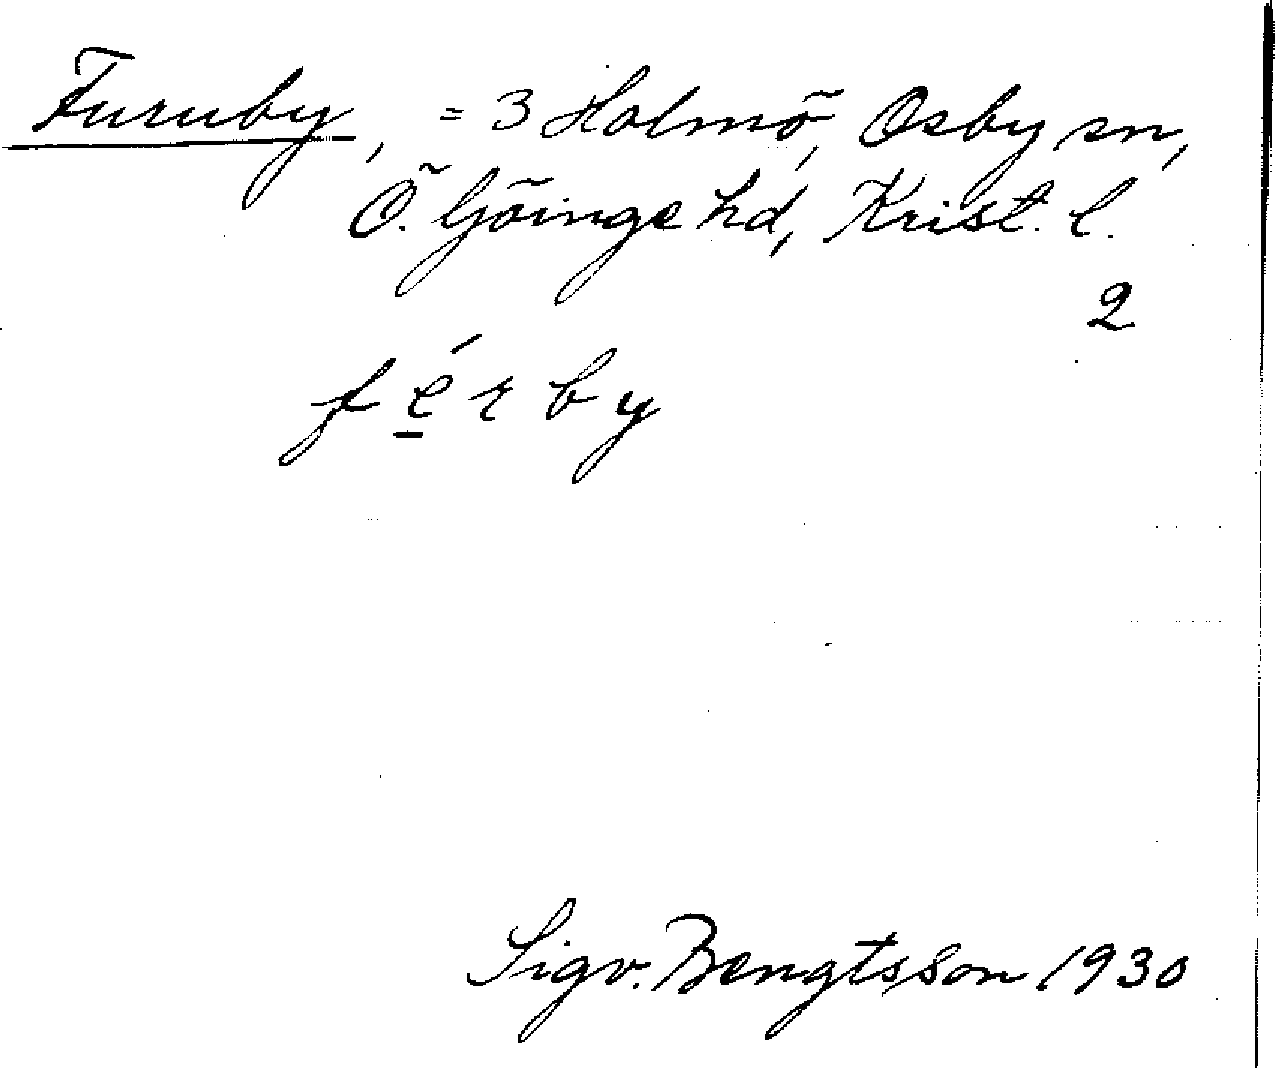 Furuby, = 3 Holmö, Osby sn,
Ö. Göinge hd, Krist. l.
2
f é̱ r b y
Sigv. Bengtsson 1930